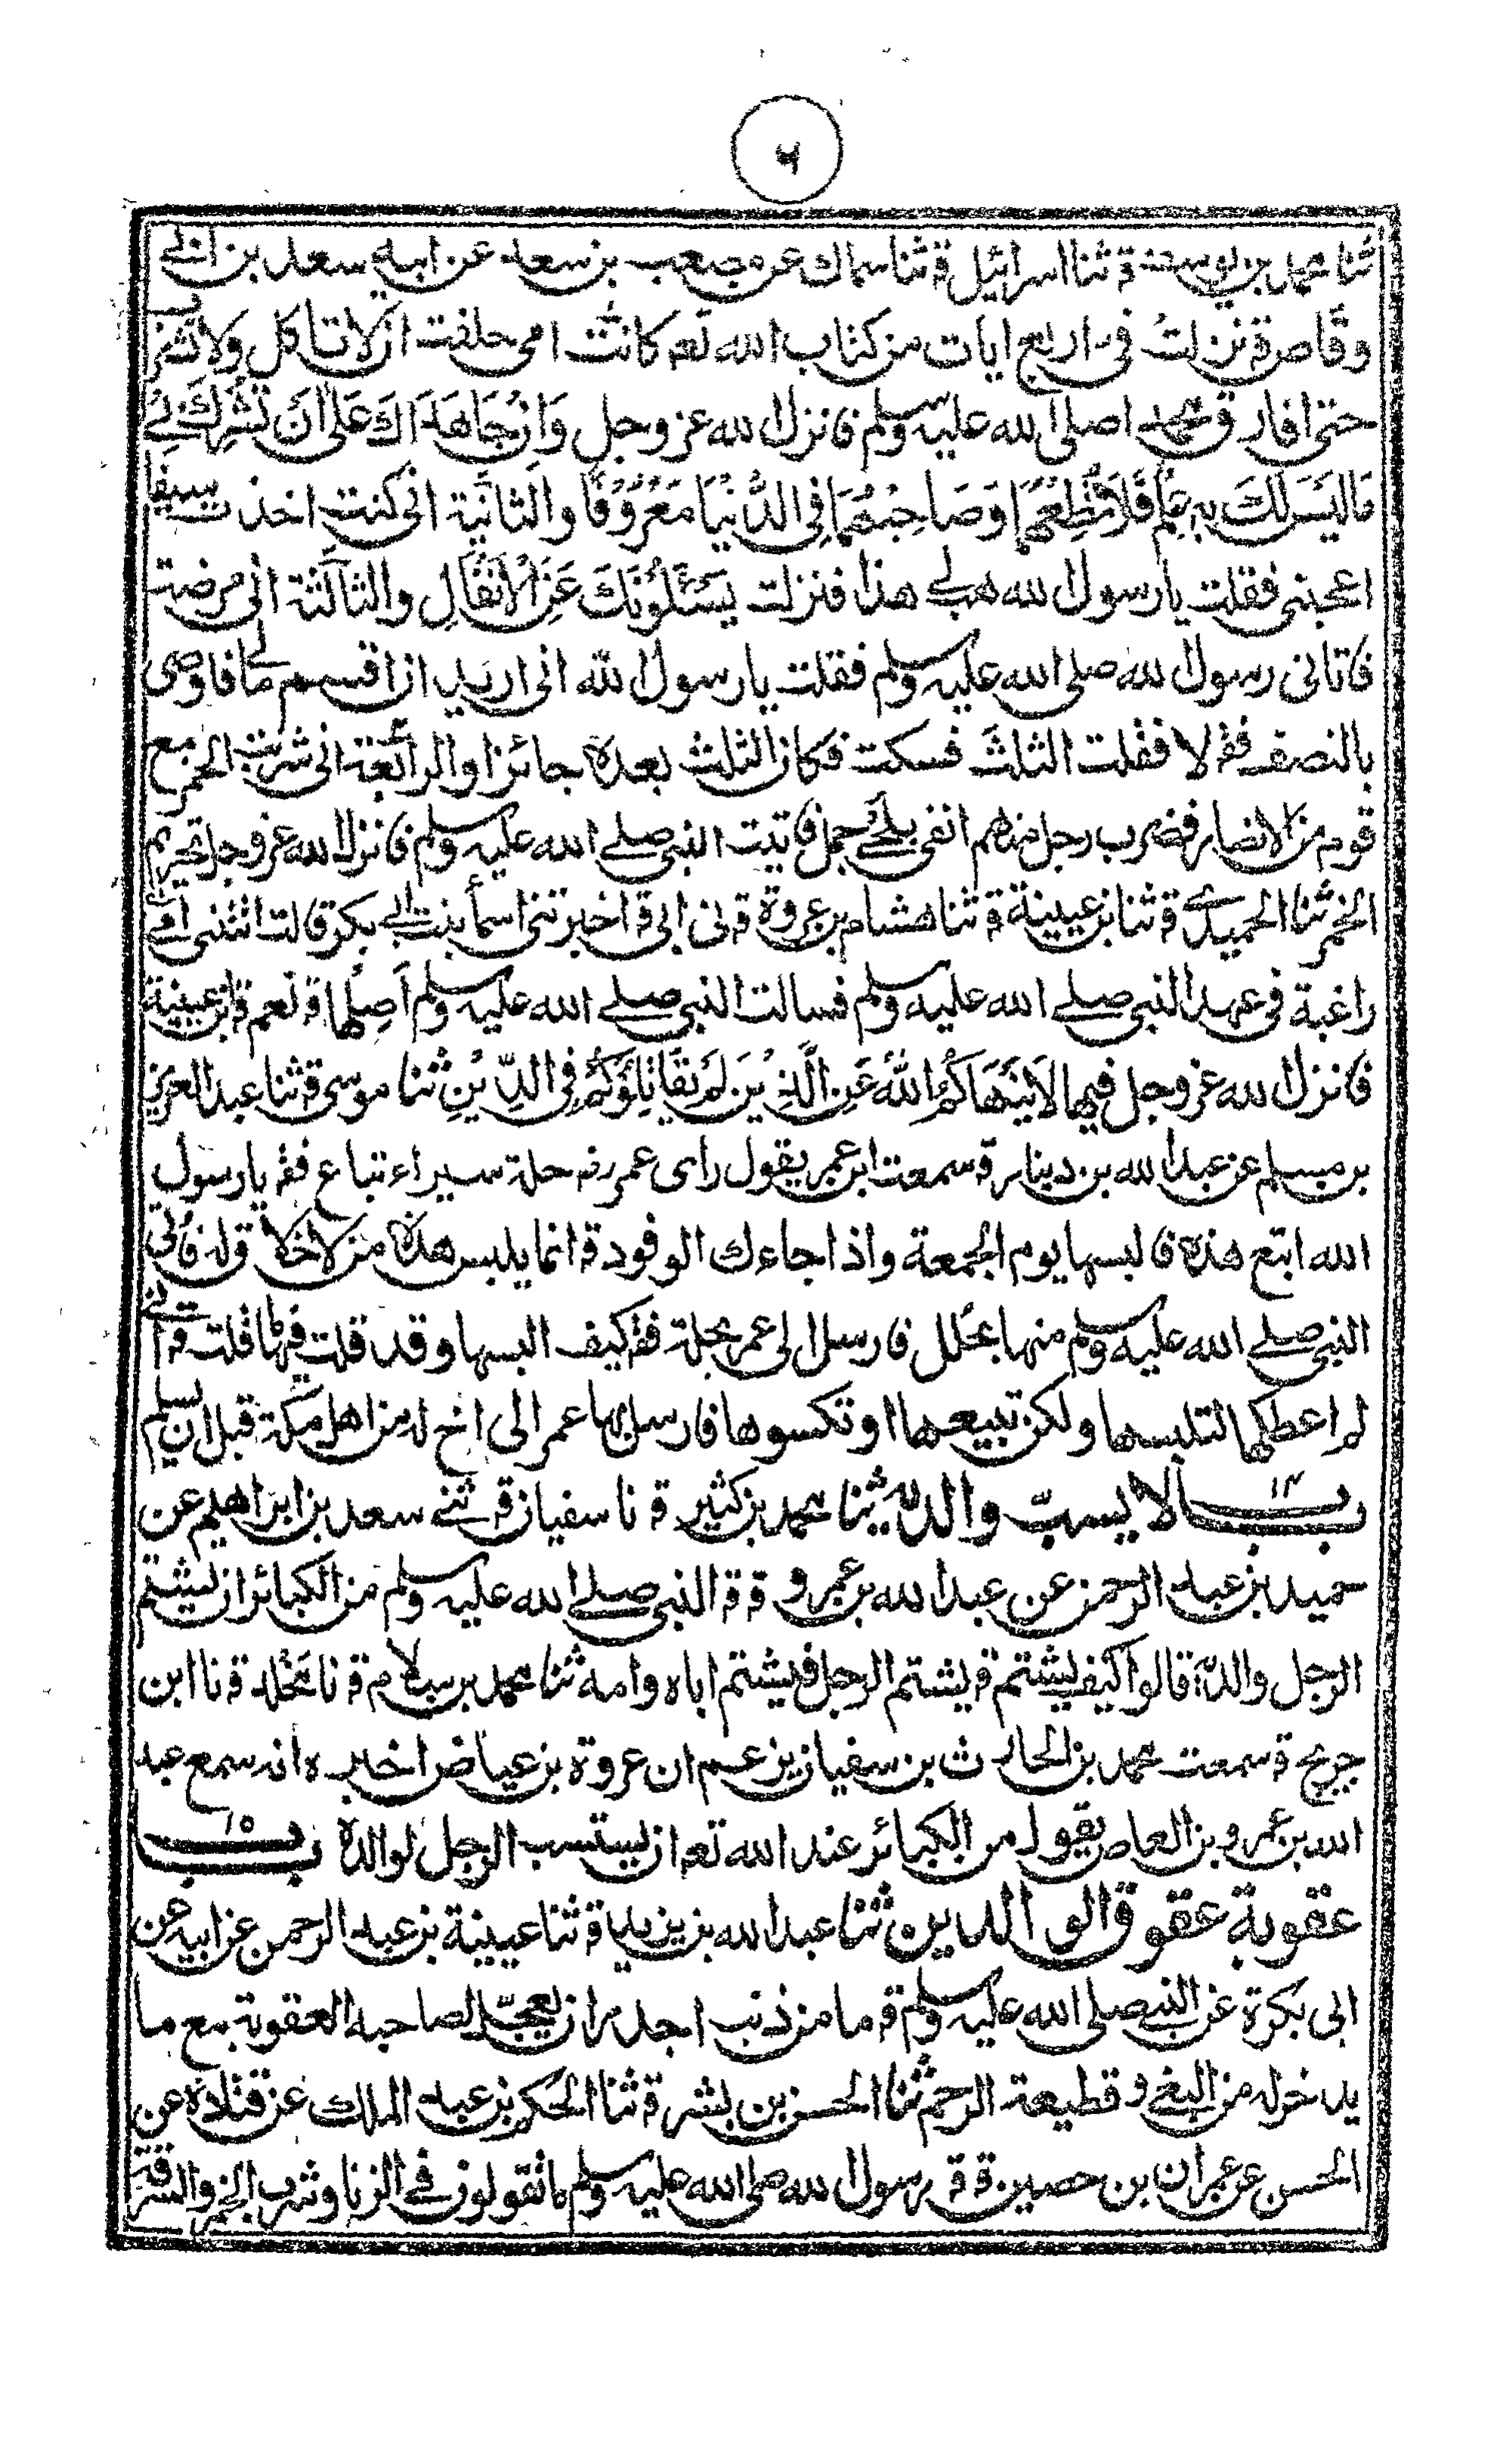 ٦
ثنا محمد بن يوسف ق ثنا اسرائيل ق ثنا سماك عن مصعب بن سعد عن ابيه سعد بن ابي
وقاص ق نزلت في اربع ايات من كتاب الله تع كانت امي حلفت ان لا تاكل ولا تشرب
حتى افارق محمدا صلى الله عليه وسلم فانزل الله عز وجل وَاِنْ جَاهَدَاكَ عَلٰى اَنْ تُشْرِكَ بِيْ
مَا لَيْسَ لَكَ بِهٖ عِلْمٌ فَلَا تُطِعْهُمَا وَصَاحِبْهُمَا فِي الدُّنْيَا مَعْرُوْفًا والثانية اني كنت اخذت سيفا
اعجبني فقلت يا رسول الله هب لي هذا فنزلت يَسْئَلُوْنَكَ عَنِ الْاَنْفَالِ والثالثة اني مرضت
فاتاني رسول الله صلى الله عليه وسلم فقلت يا رسول الله اني اريد ان اقسم مالي افاوصي
بالنصف فق لا فقلت الثلث فسكت فكان الثلث بعده جائزا والرابعة اني شربت الخمر مع
قوم من الانصار فضرب رجل منهم انفي بلحي جمل فاتيت النبي صلى الله عليه وسلم فانزل الله عز وجل تحريم
الخمر ثنا الحميدي ق ثنا ابن عيينة ق ثنا هشام بن عروة ق ني ابي ق اخبرتني اسماء بنت ابي بكر قالت اتتني امي
راغبة في عهد النبي صلى الله عليه وسلم فسالت النبي صلى الله عليه وسلم أَصِلُها ق نعم ق ابن عيينة
فانزل الله عز وجل فيها لَا يَنْهَاكُمُ اللّٰهُ عَنِ الَّذِيْنَ لَمْ يُقَاتِلُوْكُمْ فِي الدِّيْنِ ثنا موسى ق ثنا عبد العزيز
بن مسلم عن عبد الله بن دينار ق سمعت ابن عمر يقول راى عمر رض حلة سيراء تباع فق يا رسول
الله ابتع هذه فالبسها يوم الجمعة واذا جاءك الوفود ق انما يلبس هذه من لا خلاق له فاتي
النبي صلى الله عليه وسلم منها بحُلَل فارسل الى عمر بحلة فق كيف البسها وقد قلت فيها ما قلت ق اني
لم اعطكها لتلبسها ولكن تبيعها او تكسوها فارسل بها عمر الى اخ له من اهل مكة قبل ان يسلم
باب ١٤ لا يسب والديه ثنا محمد بن كثير ق نا سفيان ق ثني سعد بن ابراهيم عن
حميد بن عبد الرحمن عن عبد الله بن عمرو ق ق النبي صلى الله عليه وسلم من الكبائر ان يشتم
الرجل والديه قالوا كيف يشتم ق يشتم الرجل فيشتم اباه وامه ثنا محمد بن سلام ق نا مخلد ق نا ابن
جريج ق سمعت محمد بن الحارث بن سفيان يزعم ان عروة بن عياض اخبره انه سمع عبد
الله بن عمرو بن العاص يقول من الكبائر عند الله تع ان يستسب الرجل لوالده باب ١٥
عقوبة عقوق الوالدين ثنا عبد الله بن يزيد ق ثنا عيينة بن عبد الرحمن عن ابيه عن
ابي بكرة عن النبي صلى الله عليه وسلم ق ما من ذنب اجدر ان يعجّل لصاحبه العقوبة مع ما
يدخر له من البغي وقطيعة الرحم ثنا الحسن بن بشر ق ثنا الحكم بن عبد الملك عن قتادة عن
الحسن عن عمران بن حصين ق ق رسول الله صلى الله عليه وسلم ما تقولون في الزنا وشرب الخمر والسرقة